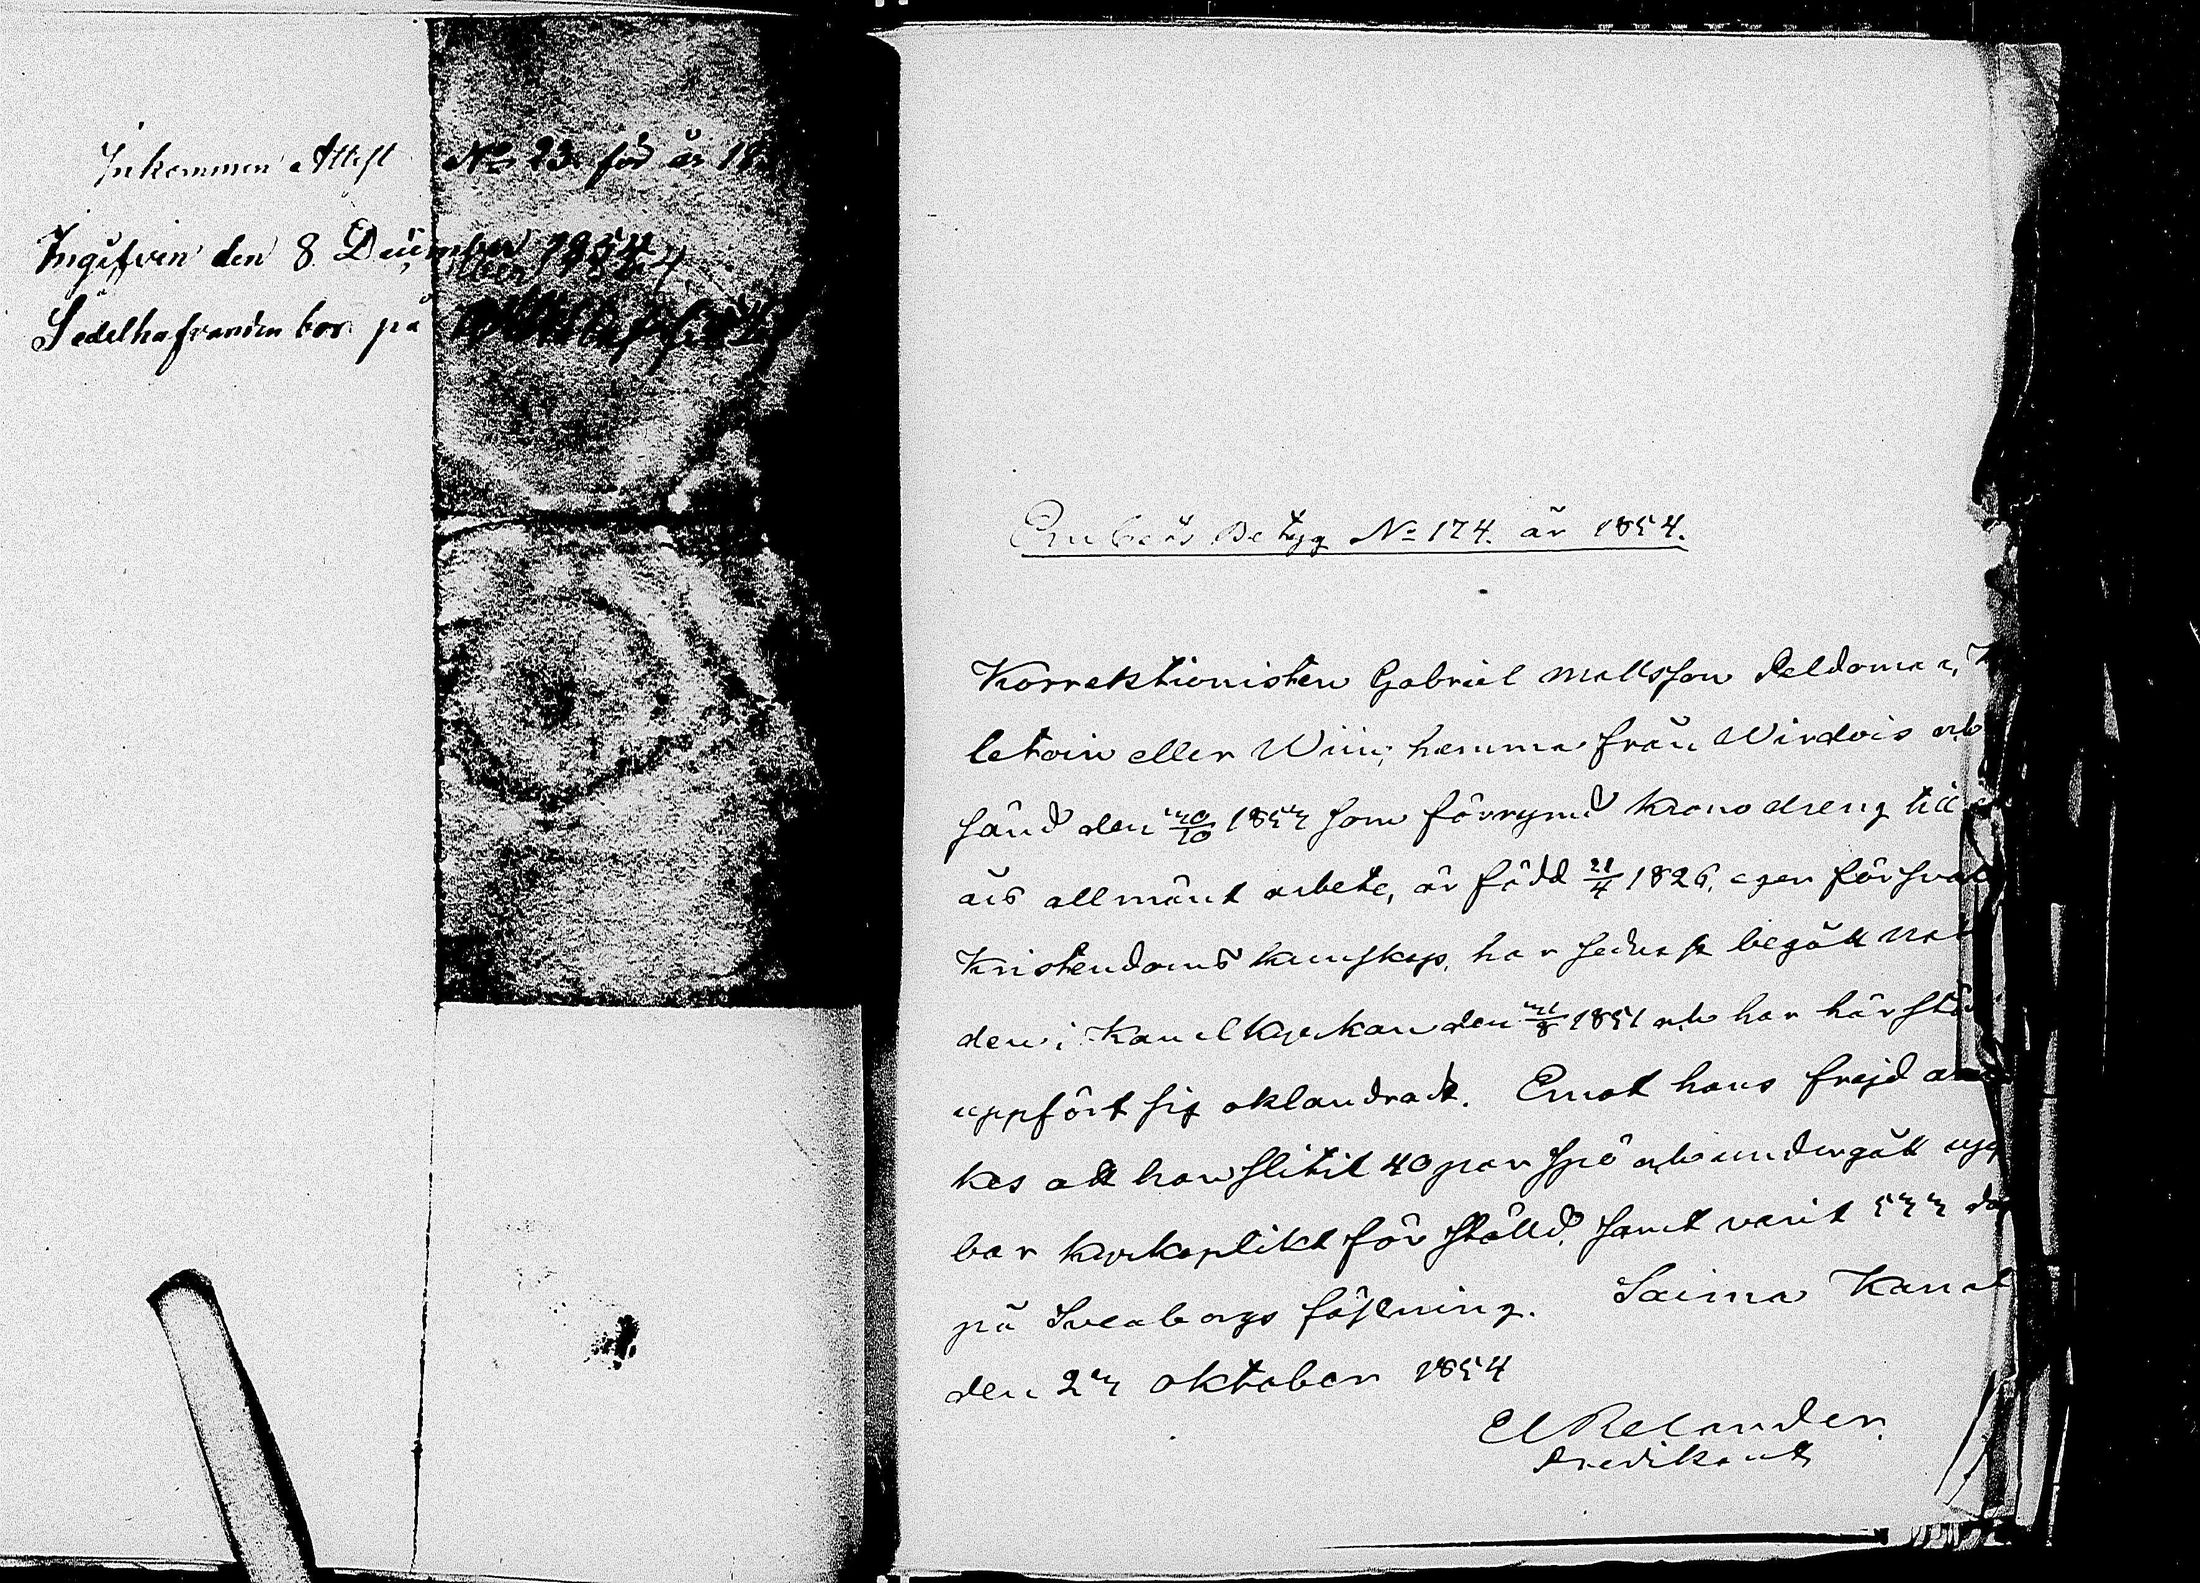 Inkommen Attest No 23. för år 18
Ingifven den 8 December 1854
Sedelhafvanden bor på
Embets Betyg No 174. år 1854.
Korrektionisten Gabriel Mattsson Peldomaa,
letoin eller Wiin, hemma från Wirdois och
sänd den 30/10 1853 som förrymd kronodreng till
års allmänt arbete, är född 21/4 1826. eger försvar
Kristendoms kunskap, har sednast begått nat
den i Kanalkyrkan den 31/8 1851 och har här stä
uppfört sig oklandradt. Emot hans frejd an
kes att han slitit 40 par spö och undergått upp
bar kyrkoplikt för stöld, samt varit 533 da
på Sveaborgs fästning. Saima Kanal
den 23 oktober 1854
Relander.
Predikant